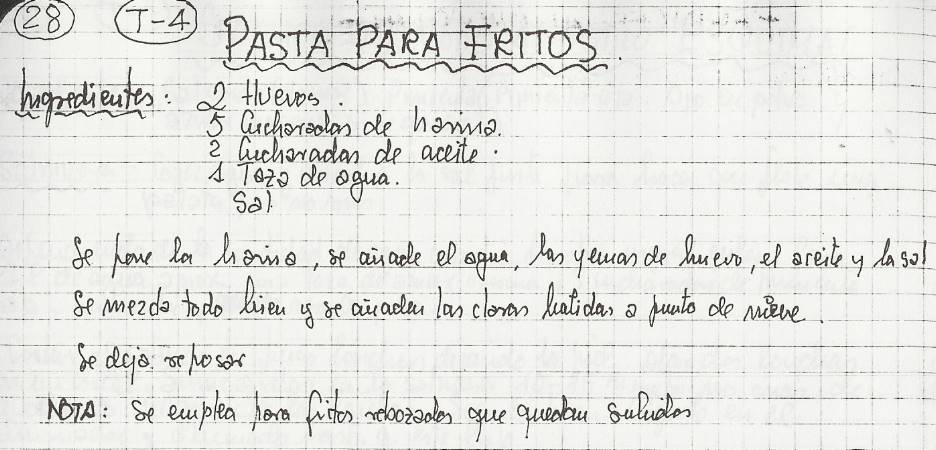 28 T-4
PASTA PARA FRITOS.
Ingredientes: 2 Huevos.
5 Cucharadas de harina.
2 Cucharadas de aceite.
1 Taza de agua.
Sal
Se pone la harina, se añade el agua, las yemas de huevo, el aceite y la sal
Se mezcla todo bien y se añaden las claras batidas a punto de nieve.
Se deja reposar
NOTA: Se emplea para fritos rebozados que quedan